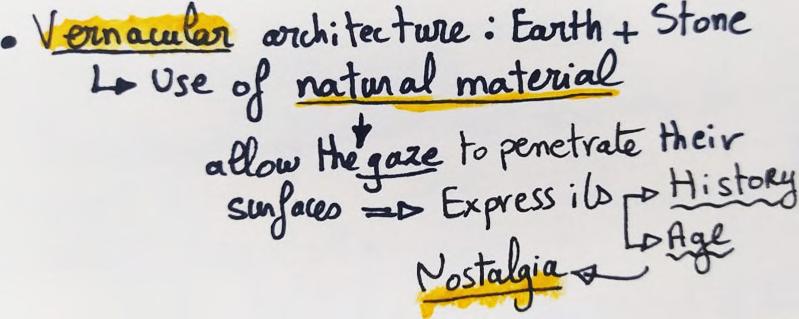 • Vernacular architecture : Earth + Stone
↳ Use of natural material
↓
allow the gaze to penetrate their
surfaces ⇒ Express its → History
↳ Age
Nostalgia ←